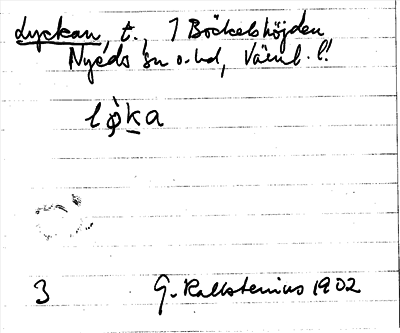 Lyckan, t., 1 Böckelshöjden
Nyeds sn o. hd, Värml. l.
lø̀ka
3 G. Kallstenius 1902